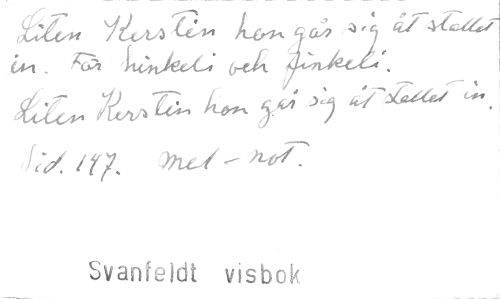 Liten Kersten hon går sig åt stallet
in. För hinkeli och finkeli.
Liten Kerstin hon går sig åt stallet in.
Sid. 147. mel-not.
Svanfeldt visbok